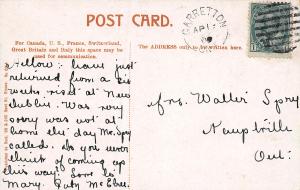 POST CARD.
For Canada, U. S., France, Switzerland,
Great Britain and Italy this space may be
used for communication.
The ADDRESS only to be written here.
GARRETTON
AP 1
ONT
Hellow: have just
returned from a six
weeks visit at New
Dublin. Was very
sorry was not at
home the day Mr. Spry
called. Do you ever
think of coming up
this way? Love to
Mary. Ruby McElree.
Mrs. Walter Spry
Newplville
Ont.